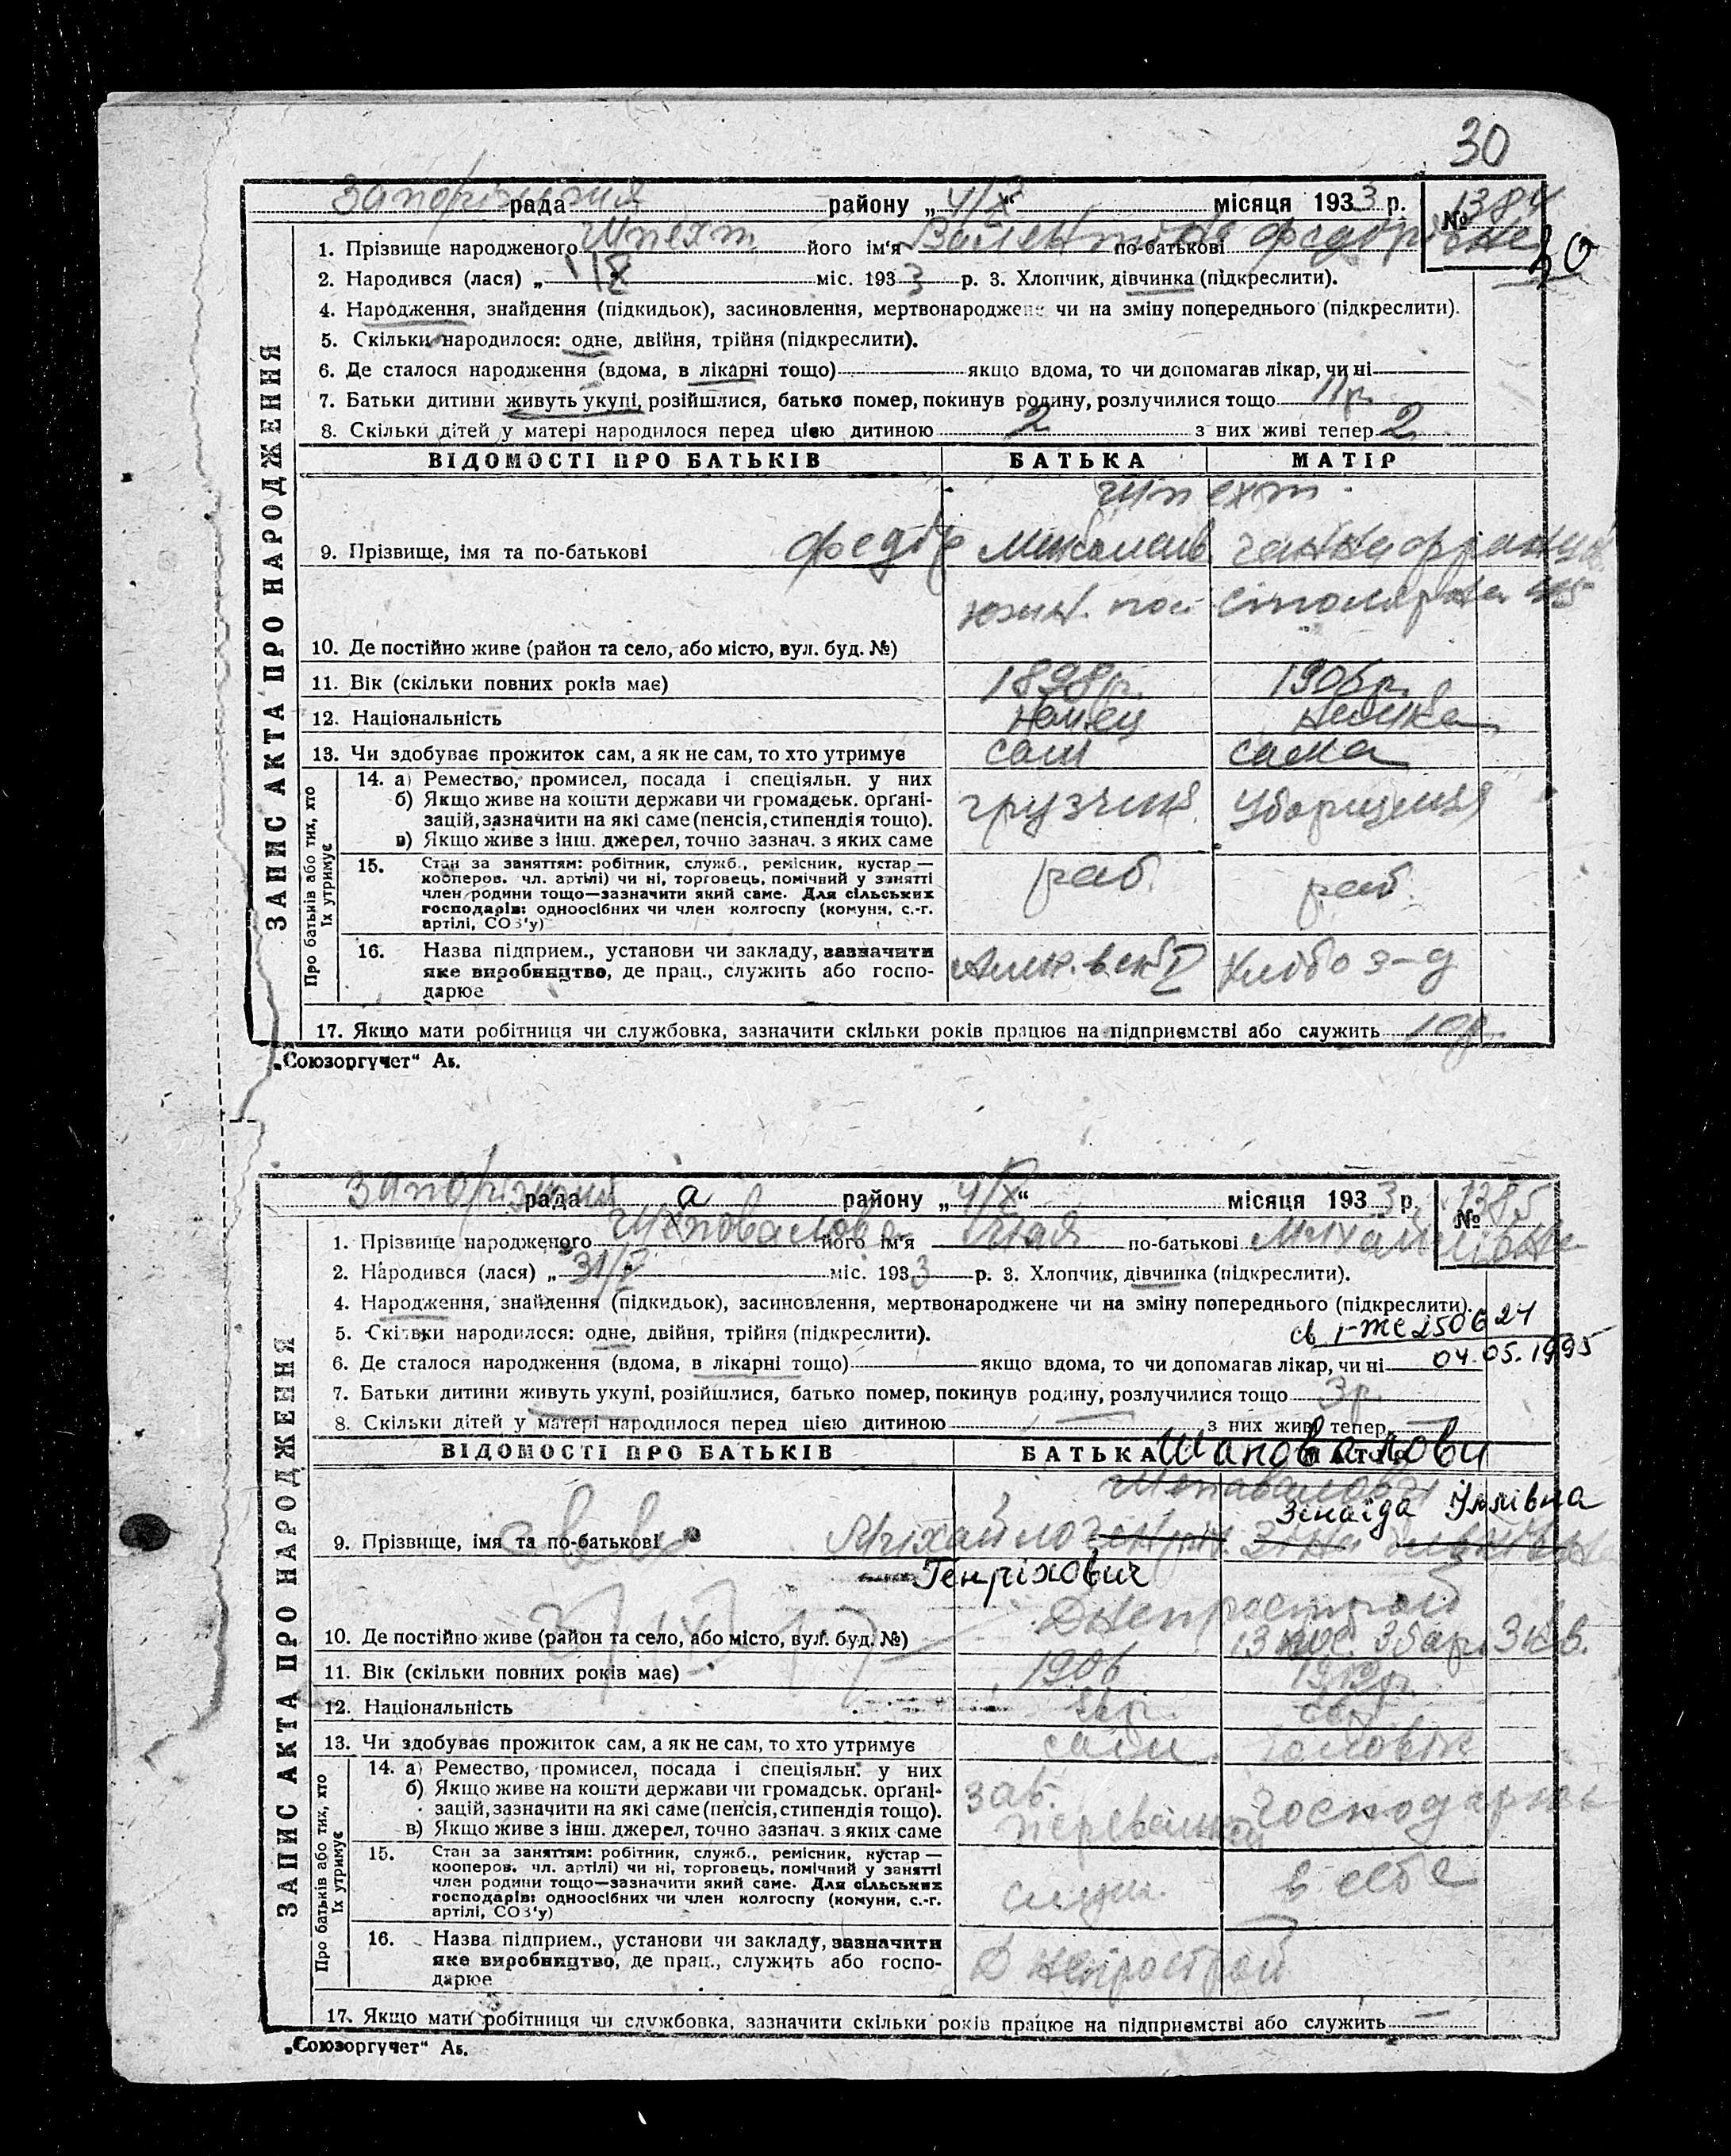 30
Запорізький рада району „ 4/X “ місяця 1933 р. № 1384
30
1. Прізвище народженого Шпехт його ім'я Валентина по-батькові Федорівна
2. Народився (лася) „ міс. 1933 р. 3. Хлопчик, дівчинка (підкреслити).
4. Народження, знайдення (підкидьок), засиновлення, мертвонароджене чи на зміну попереднього (підкреслити).
5. Скільки народилося: одне, двійня, трійня (підкреслити).
6. Де сталося народження (вдома, в лікарні тощо) якщо вдома, то чи допомагав лікар, чи ні
7. Батьки дитини живуть укупі, розійшлися, батько помер, покинув родину, розлучилися тощо 11 р.
8. Скільки дітей у матері народилося перед цією дитиною 2 з них живі тепер 2
ЗАПИС АКТА ПРО НАРОДЖЕННЯ
ВІДОМОСТІ ПРО БАТЬКІВ БАТЬКА МАТІР
Шпехт
9. Прізвище, імя та по-батькові Федір
10. Де постійно живе (район та село, або місто, вул. буд. №)
11. Вік (скільки повних років має) 1898 р. 1906 р.
12. Національність немец немка
13. Чи здобуває прожиток сам, а як не сам, то хто утримує сам сама
Про батьків або тих, хто їх утримує
14. а) Ремество, промисел, посада і спеціяльн. у них
б) Якщо живе на кошти держави чи громадськ. організацій, зазначити на які саме (пенсія, стипендія тощо).
в) Якщо живе з інш. джерел, точно зазнач. з яких саме
грузчик уборщиця
15. Стан за заняттям: робітник, служб., ремісник, кустар — кооперов. чл. артілі) чи ні, торговець, помічний у занятті член родини тощо—зазначити який саме. Для сільських господарів: одноосібних чи член колгоспу (комуни, с.-г. артілі, СОЗ'у)
раб. раб.
16. Назва підприєм., установи чи закладу, зазначити яке виробництво, де прац., служить або господарює
Хлібо з-д
17. Якщо мати робітниця чи службовка, зазначити скільки років працює на підприємстві або служить
„Союзоргучет“ Аг.
Запорізький рада а району „ 4/X “ місяця 1933 р. № 1385
1. Прізвище народженого Шаповалова його ім'я Мая по-батькові Михайлівна
2. Народився (лася) „ міс. 1933 р. 3. Хлопчик, дівчинка (підкреслити).
4. Народження, знайдення (підкидьок), засиновлення, мертвонароджене чи на зміну попереднього (підкреслити).
5. Скільки народилося: одне, двійня, трійня (підкреслити).
св I-ЖС 250624
6. Де сталося народження (вдома, в лікарні тощо) якщо вдома, то чи допомагав лікар, чи ні 04.05.1995
7. Батьки дитини живуть укупі, розійшлися, батько помер, покинув родину, розлучилися тощо 3 р.
8. Скільки дітей у матері народилося перед цією дитиною — з них живі тепер —
ЗАПИС АКТА ПРО НАРОДЖЕННЯ
ВІДОМОСТІ ПРО БАТЬКІВ БАТЬКА МАТІР
Шаповалови
Зінаїда Іллівна
9. Прізвище, імя та по-батькові Міхайло
Генріхович
Днепрострой
10. Де постійно живе (район та село, або місто, вул. буд. №) 13 пос. 3 бар. 3 кв.
11. Вік (скільки повних років має) 1906
12. Національність євр. євр.
13. Чи здобуває прожиток сам, а як не сам, то хто утримує сам чоловік
Про батьків або тих, хто їх утримує
14. а) Ремество, промисел, посада і спеціяльн. у них
б) Якщо живе на кошти держави чи громадськ. організацій, зазначити на які саме (пенсія, стипендія тощо).
в) Якщо живе з інш. джерел, точно зазнач. з яких саме
зав.
15. Стан за заняттям: робітник, служб., ремісник, кустар — кооперов. чл. артілі) чи ні, торговець, помічний у занятті член родини тощо—зазначити який саме. Для сільських господарів: одноосібних чи член колгоспу (комуни, с.-г. артілі, СОЗ'у)
служ. в себе
16. Назва підприєм., установи чи закладу, зазначити яке виробництво, де прац., служить або господарює
Днепрострой
17. Якщо мати робітниця чи службовка, зазначити скільки років працює на підприємстві або служить —
„Союзоргучет“ Аг.